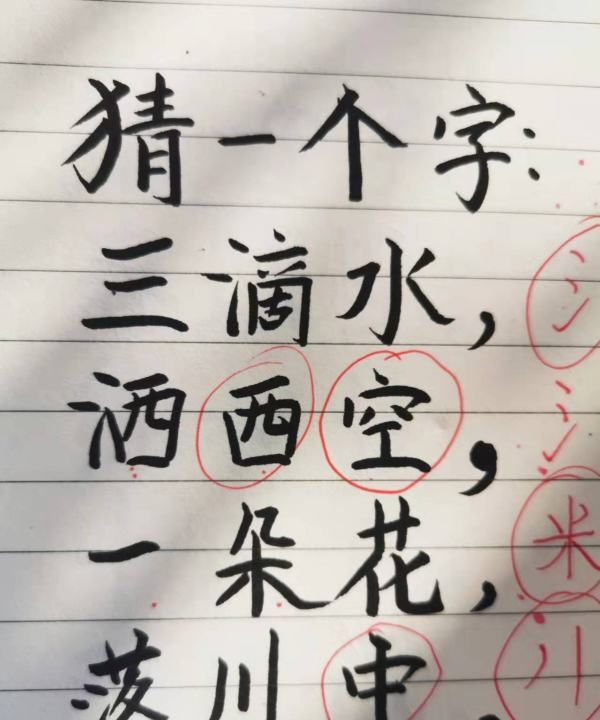 猜一个字:
三滴水,
洒西空,
一朵花,
落川中
氵
氵
米